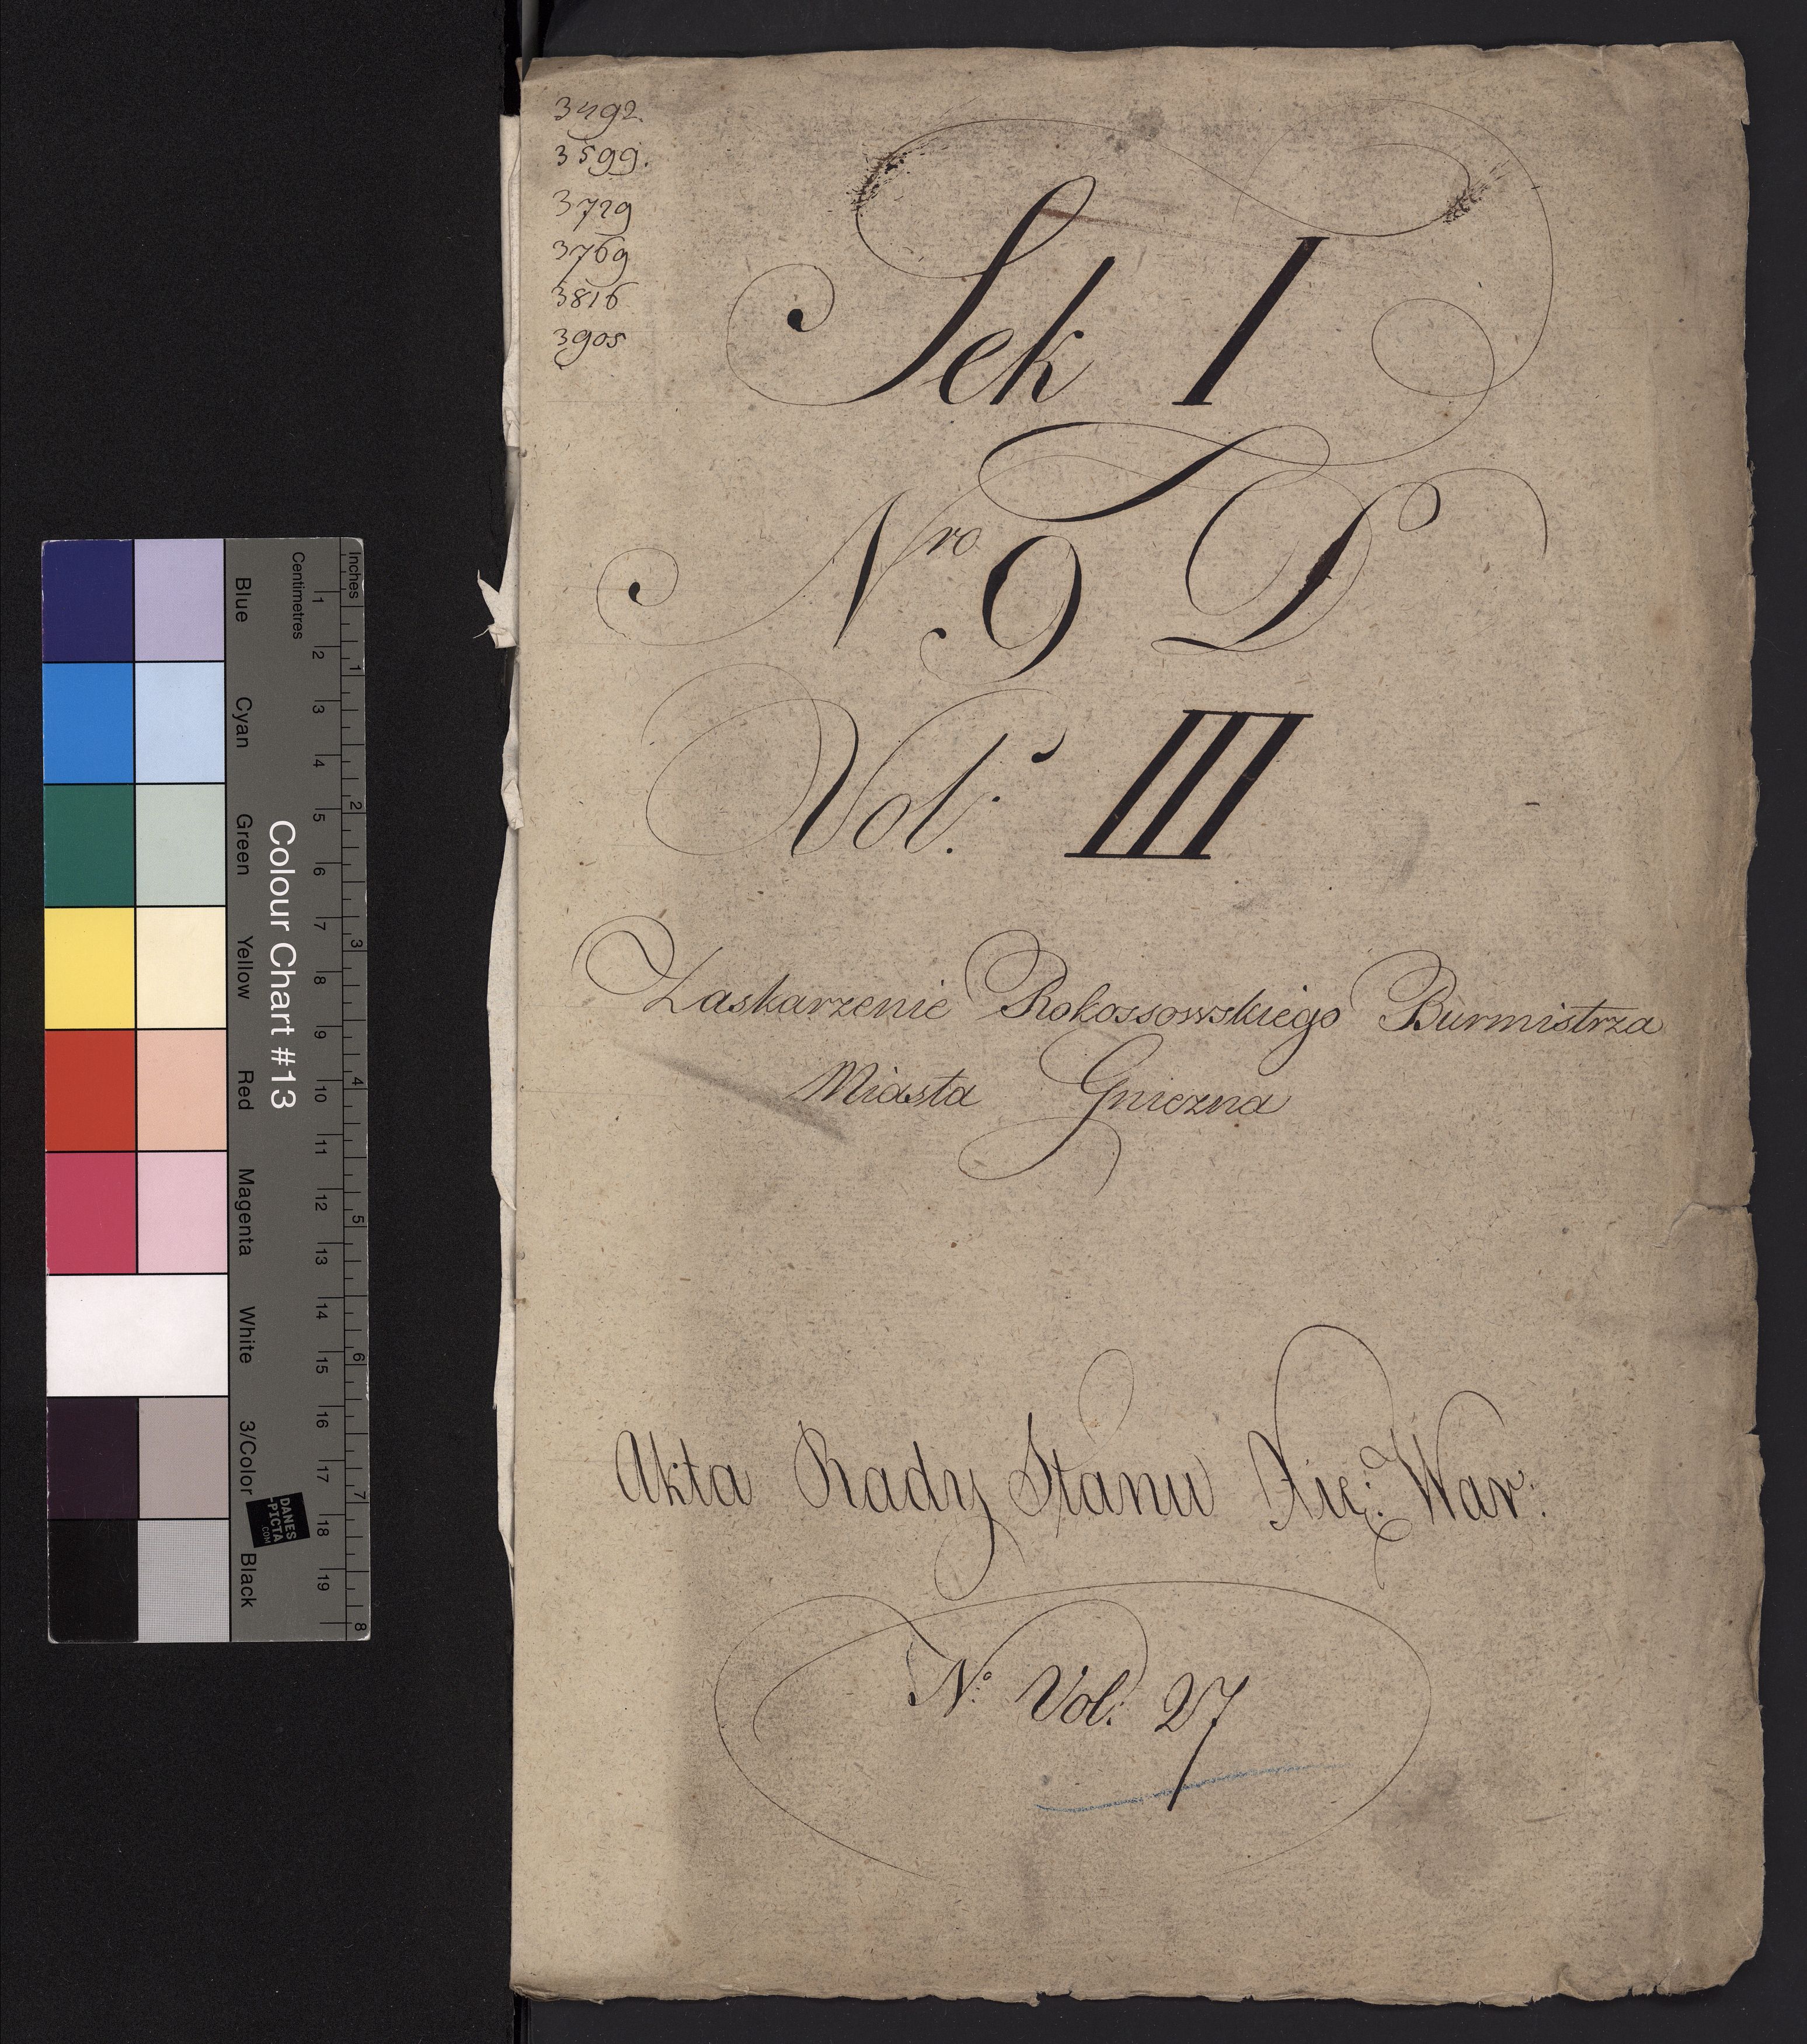 3492.
3599.
3729
3769
3816
3905
Sek I
Nro 9 D
Vol: III
Zaskarzenie Rokossowskiego Burmistrza
Miasta Gniezna
Akta Rady Stanu Xię: War:
No Vol: 27
Inches
Centimetres
1 2 3 4 5 6 7 8 9 10 11 12 13 14 15 16 17 18 19
1 2 3 4 5 6 7 8
Colour Chart #13
Blue Cyan Green Yellow Red Magenta White 3/Color Black
DANES
-PICTA
.COM